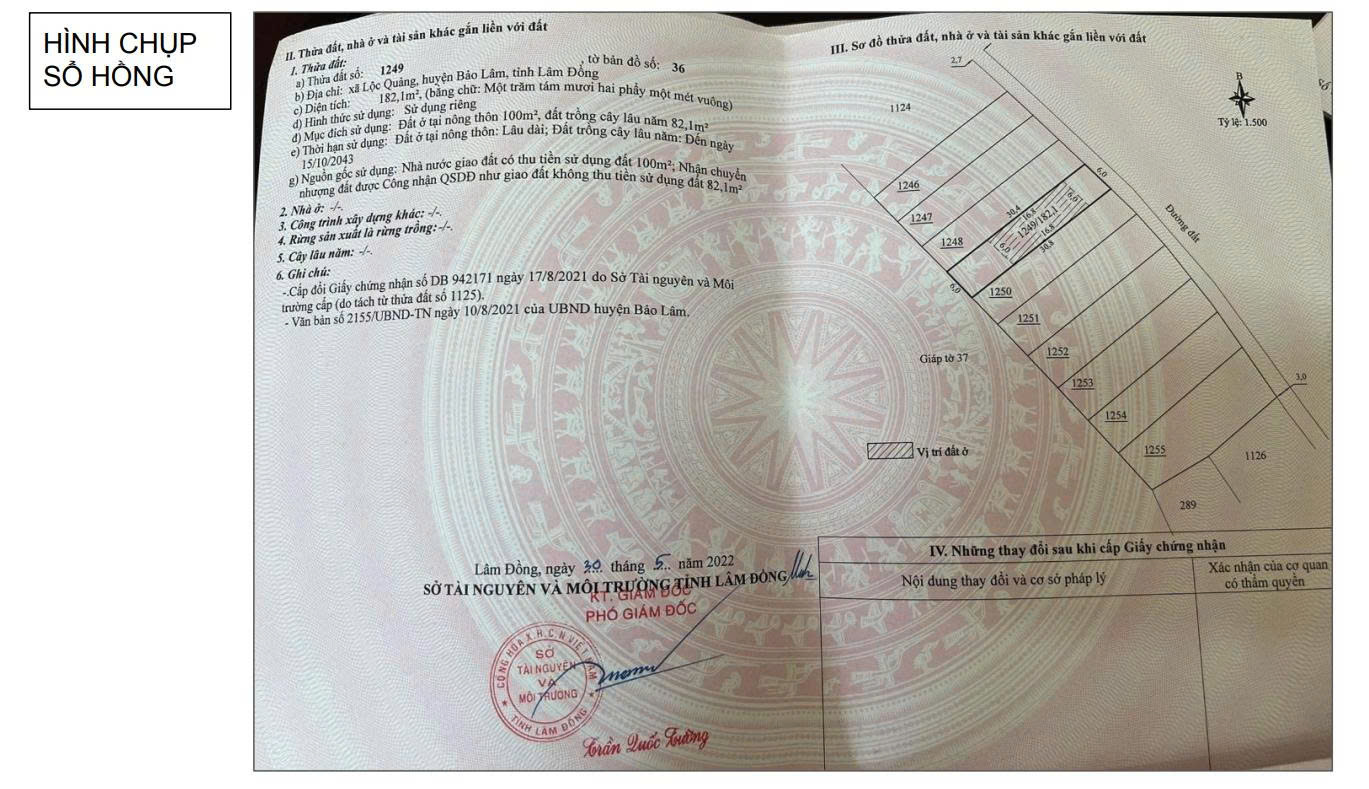 HÌNH CHỤP
SỔ HỒNG
II. Thửa đất, nhà ở và tài sản khác gắn liền với đất
1. Thửa đất:
a) Thửa đất số: 1249 , tờ bản đồ số: 36
b) Địa chỉ: xã Lộc Quảng, huyện Bảo Lâm, tỉnh Lâm Đồng
c) Diện tích: 182,1m², (bằng chữ: Một trăm tám mươi hai phẩy một mét vuông)
d) Hình thức sử dụng: Sử dụng riêng
đ) Mục đích sử dụng: Đất ở tại nông thôn 100m², đất trồng cây lâu năm 82,1m²
e) Thời hạn sử dụng: Đất ở tại nông thôn: Lâu dài; Đất trồng cây lâu năm: Đến ngày
15/10/2043
g) Nguồn gốc sử dụng: Nhà nước giao đất có thu tiền sử dụng đất 100m²; Nhận chuyển
nhượng đất được Công nhận QSDĐ như giao đất không thu tiền sử dụng đất 82,1m²
2. Nhà ở: -/-.
3. Công trình xây dựng khác: -/-.
4. Rừng sản xuất là rừng trồng: -/-.
5. Cây lâu năm: -/-.
6. Ghi chú:
-.Cấp đổi Giấy chứng nhận số DB 942171 ngày 17/8/2021 do Sở Tài nguyên và Môi
trường cấp (do tách từ thửa đất số 1125).
- Văn bản số 2155/UBND-TN ngày 10/8/2021 của UBND huyện Bảo Lâm.
Lâm Đồng, ngày 30 tháng 5 năm 2022
SỞ TÀI NGUYÊN VÀ MÔI TRƯỜNG TỈNH LÂM ĐỒNG
KT. GIÁM ĐỐC
PHÓ GIÁM ĐỐC
CỘNG HÒA X.H.C.N VIỆT NAM
SỞ
TÀI NGUYÊN
VÀ
MÔI TRƯỜNG
TỈNH LÂM ĐỒNG
Trần Quốc Tường
III. Sơ đồ thửa đất, nhà ở và tài sản khác gắn liền với đất
2,7
B
1124
Tỷ lệ: 1.500
6,0
1246
30,4
16,8
6,0
Đường đất
1247
1249/182,1
1248
6,0
16,8
30,8
6,0
1250
1251
1252
Giáp tờ 37
1253
3,0
1254
1255
Vị trí đất ở
1126
289
IV. Những thay đổi sau khi cấp Giấy chứng nhận
Nội dung thay đổi và cơ sở pháp lý
Xác nhận của cơ quan
có thẩm quyền